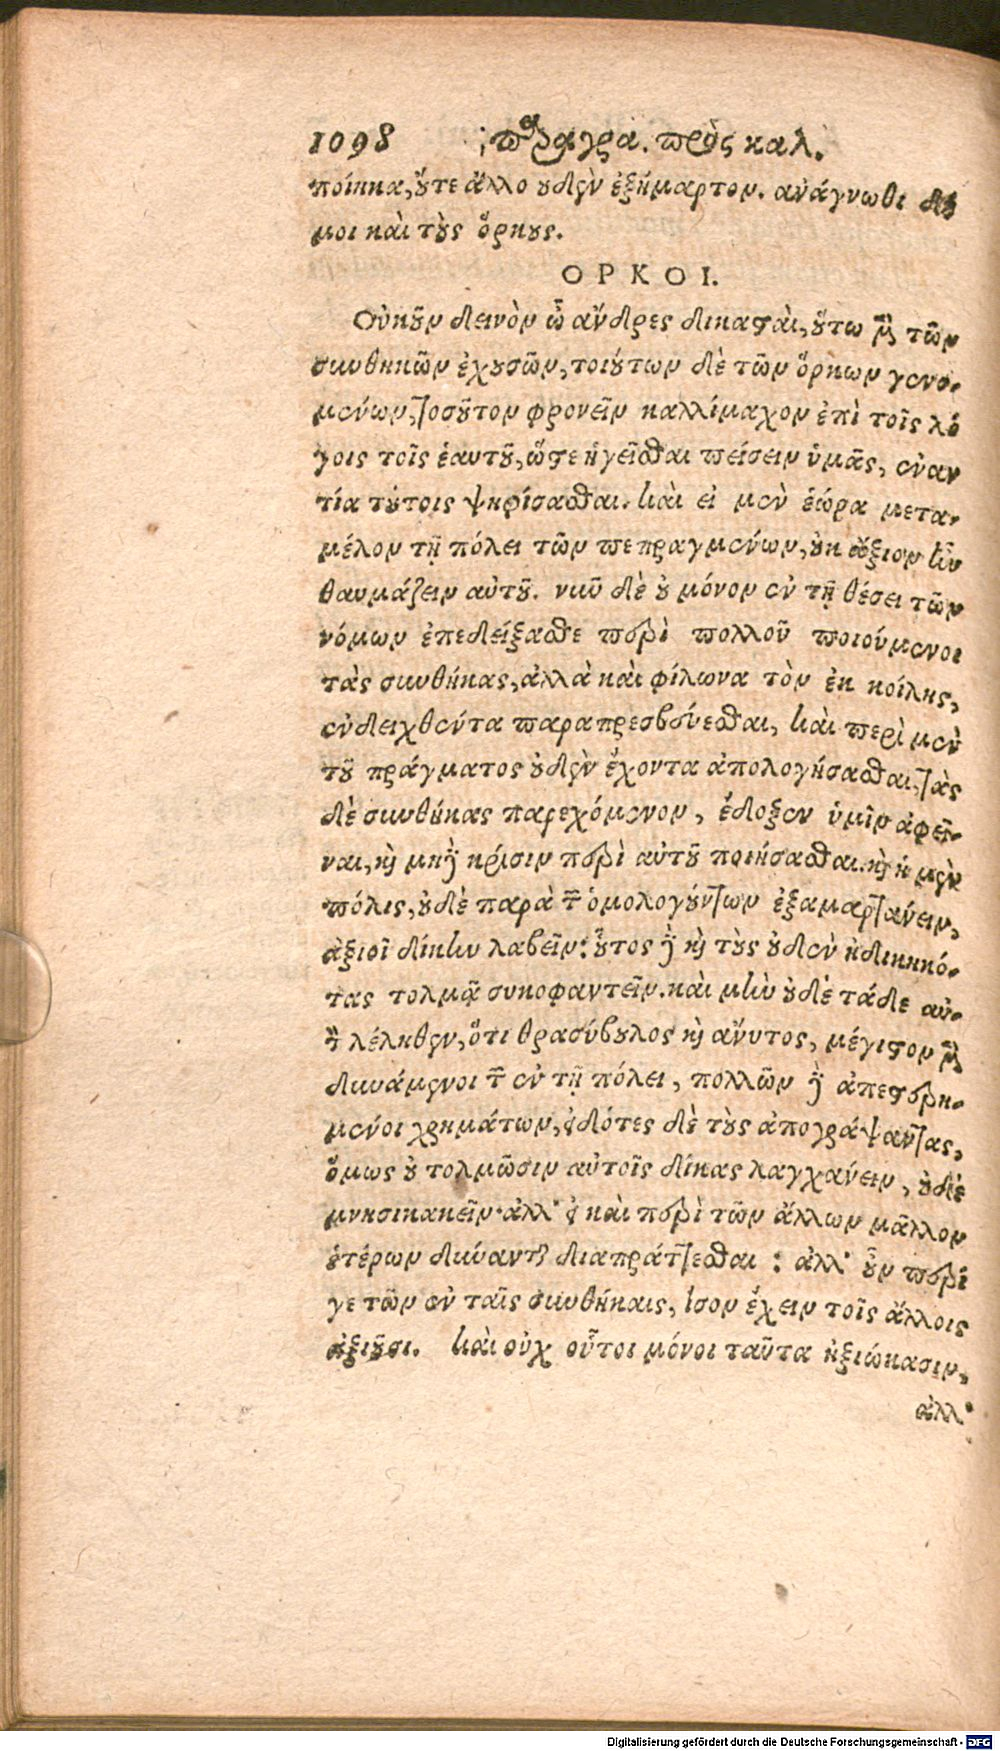 1098 παραγρα. πρὸς καλ.
ποίηκα, ὄυτε ἄλλο ουδὲν ἐξήμαρτον. ανάγνωθι δή
μοι καὶ τοὺς ὅρκους.
ΟΡΚΟΙ.
Οὐκοῦν δεινὸν ὦ ἄνδρες δικασταὶ, οὕτω μὲν τῶν
συνθηκῶν ἐχουσῶν, τοιούτων δὲ τῶν ὅρκων γενο-
μένων, τοσοῦτον φρονεῖν καλλίμαχον ἐπὶ τοῖς λό
γοις τοῖς ἑαυτοῦ, ὥστε ἡγεῖσθαι πείσειν ὑμᾶς, ἐναν
τία τούτοις ψηφίσασθαι. καὶ εἰ μὲν ἑώρα μετα-
μέλον τῇ πόλει τῶν πεπραγμένων, οὐκ ἄξιον ἦν
θαυμάζειν αὐτοῦ. νῦν δὲ οὐ μόνον ἐν τῇ θέσει τῶν
νόμων ἐπεδείξασθε περὶ πολλοῦ ποιούμενοι
τὰς συνθήκας, ἀλλὰ καὶ φίλωνα τὸν ἐκ κοίλης,
ἐνδειχθέντα παραπρεσβεύεσθαι, καὶ περὶ μὲν
τοῦ πράγματος οὐδὲν ἔχοντα ἀπολογήσασθαι, τὰς
δὲ συνθήκας παρεχόμενον, ἔδοξεν ὑμῖν ἀφεῖ-
ναι, καὶ μηδὲ κρίσιν περὶ αὐτοῦ ποιήσασθαι. καὶ ἡ μὲν
πόλις, οὐδὲ παρὰ τῶν ὁμολογούντων ἐξαμαρτάνειν,
ἀξιοῖ δίκην λαβεῖν: οὗτος δὲ καὶ τοὺς οὐδὲν ἠδικηκό-
τας τολμᾷ συκοφαντεῖν. καὶ μὴν οὐδὲ τάδε αὐ-
τὸν λέληθεν, ὅτι θρασύβουλος καὶ ἄνυτος, μέγιστον μὲν
δυνάμενοι τῶν ἐν τῇ πόλει, πολλῶν δὲ ἀπεστερη-
μένοι χρημάτων, εἰδότες δὲ τοὺς ἀπογράψαντας,
ὅμως οὐ τολμῶσιν αὐτοῖς δίκας λαγχάνειν, οὐδὲ
μνησικακεῖν· ἀλλ' εἰ καὶ περὶ τῶν ἄλλων μᾶλλον
ἑτέρων δύνανται διαπράττεσθαι: ἀλλ' οὖν περί
γε τῶν ἐν ταῖς συνθήκαις, ἴσον ἔχειν τοῖς ἄλλοις
ἀξιοῦσι. καὶ οὐχ οὗτοι μόνοι ταῦτα ἠξιώκασιν,
ἀλλ'
Digitalisierung gefördert durch die Deutsche Forschungsgemeinschaft - DFG